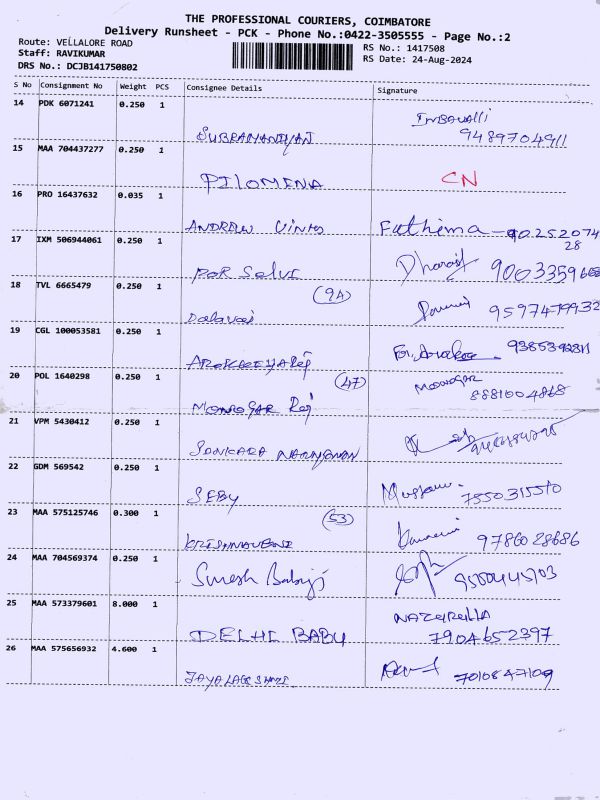 THE PROFESSIONAL COURIERS, COIMBATORE
Delivery Runsheet - PCK - Phone No.:0422-3505555 - Page No.:2
Route: VELLALORE ROAD
Staff: RAVIKUMAR
DRS No.: DCJB141750802
RS No.: 1417508
RS Date: 24-Aug-2024
S No Consignment No Weight PCS Consignee Details Signature
14 PDK 6071241 0.250 1
SUBRAMANIYAN 9489704911
15 MAA 704437277 0.250 1
PILOMENA CN
16 PRO 16437632 0.035 1
ANDREW VINTO Fathima - 90252074
28
17 IXM 506944061 0.250 1
POR SELVI 9003359668
18 TVL 6665479 0.250 1 (94)
Dalavai
19 CGL 100053581 0.250 1
20 POL 1640298 0.250 1 (47)
MONOGAR Raj 8881004868
21 VPM 5430412 0.250 1
SANKARA NARAYANAN
22 GDM 569542 0.250 1
SEBY 7550315570
23 MAA 575125746 0.300 1 (53)
KRISHNAVENI 9786028686
24 MAA 704569374 0.250 1
Suresh Babyji
25 MAA 573379601 8.000 1
DELHI BABU 7904652397
26 MAA 575656932 4.600 1
JAYALAKSHMI 7010847109